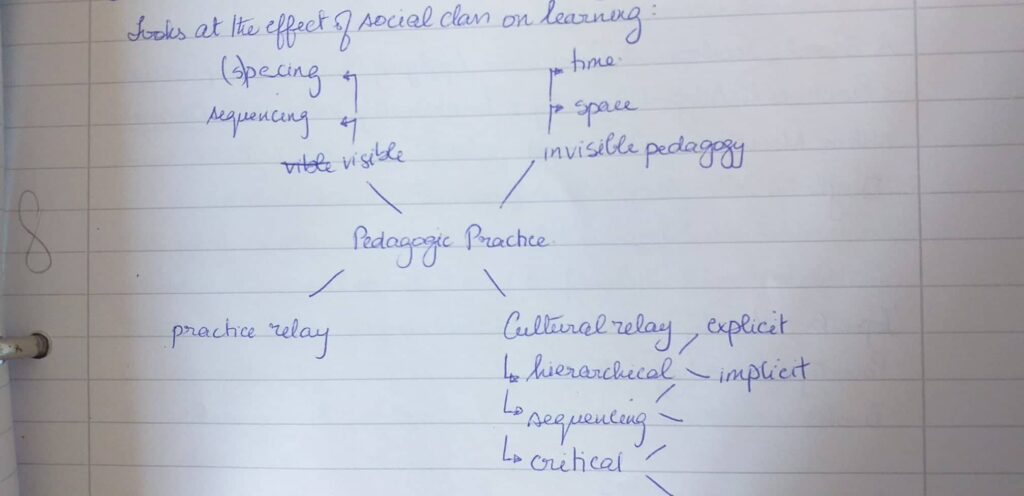 Looks at the effect of social class on learning:
(s)pacing time
sequencing space
vible visible invisible pedagogy
Pedagogic Practice
practice relay Cultural relay explicit
hierarchical implicit
sequencing
critical
8